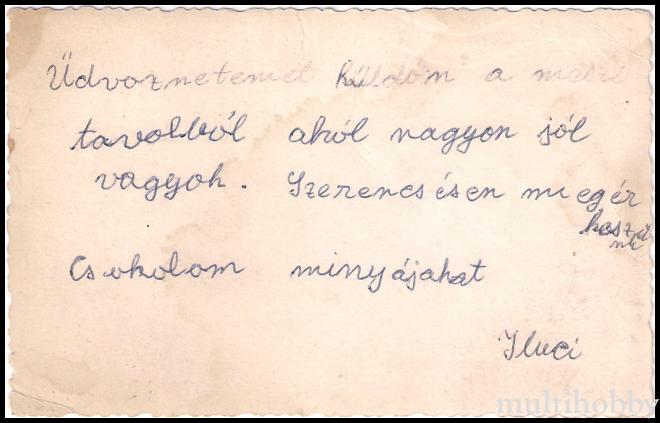 Üdvoznetemet küldöm a messi
tavolból ahól nagyon jól
vagyok. Szerencsésen miegér
keszü
ni
Csokolom minyájahat
Iluci
multihobby